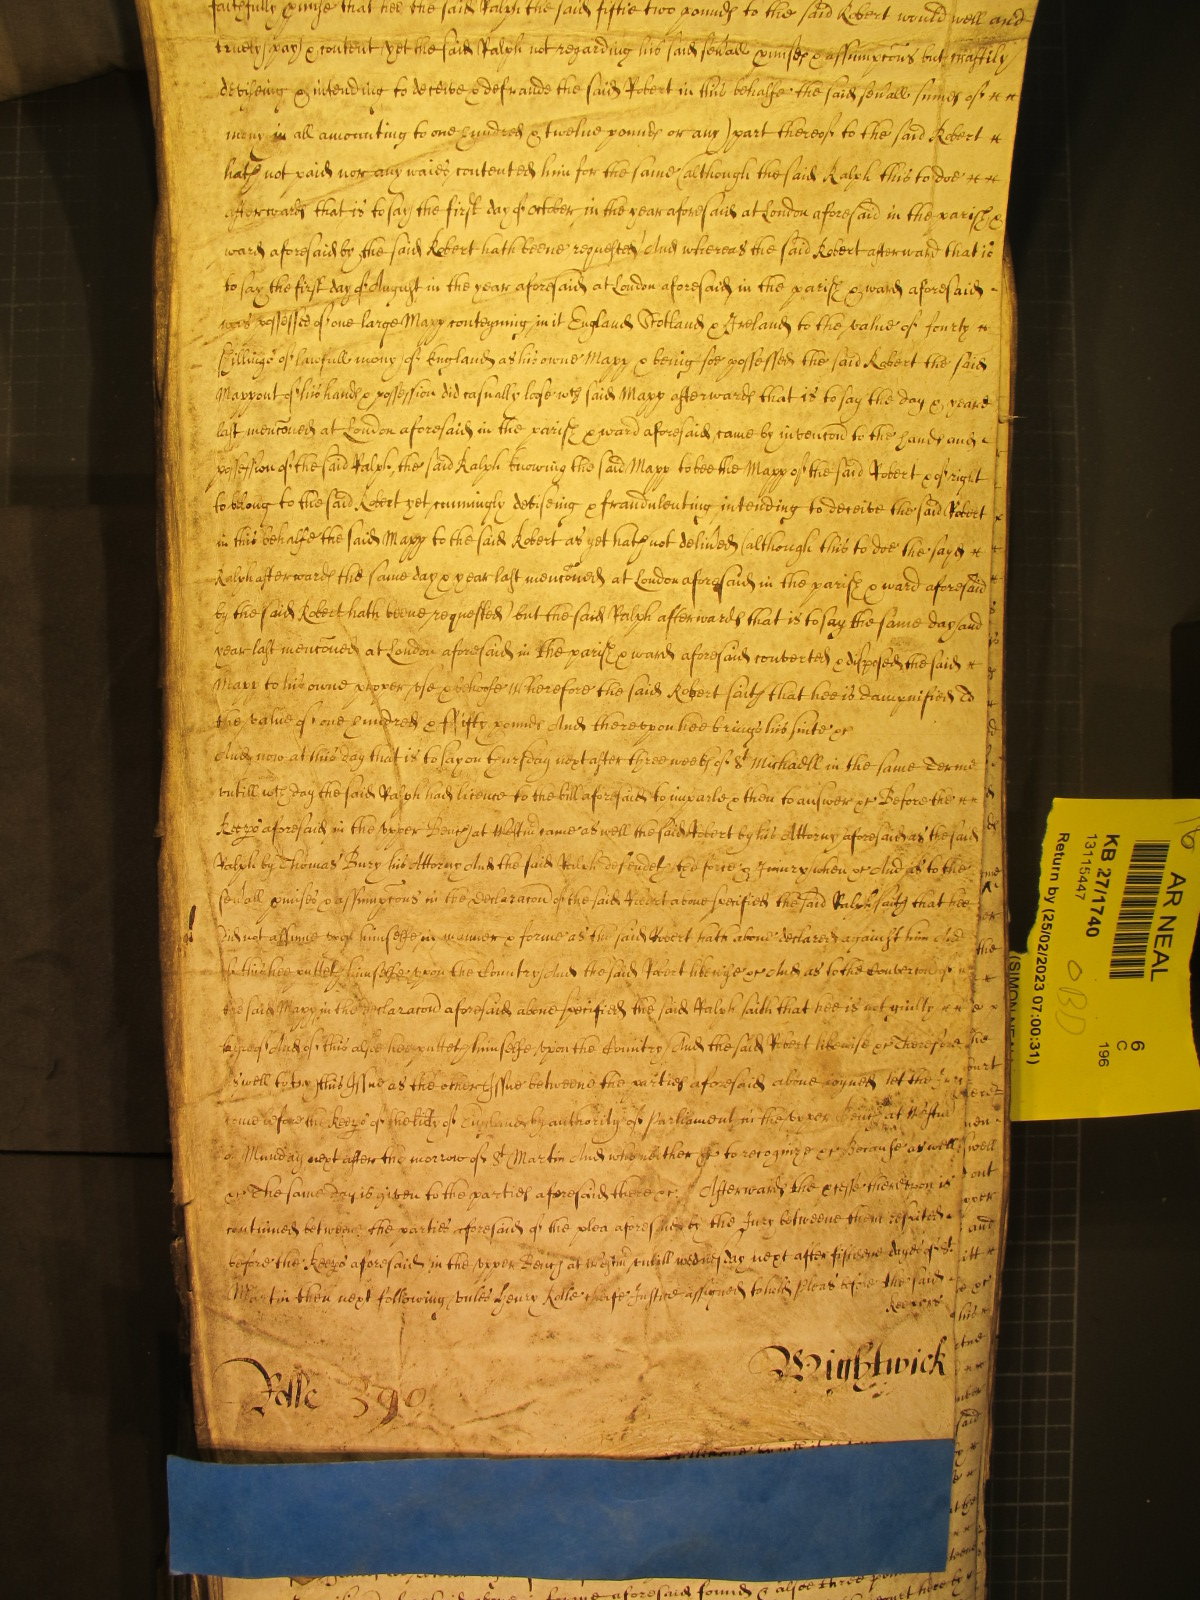 faithfully p'mise that hee the said Ralph the said fiftie two pounds to the said Robert would well and
truely pay & content yet the said Ralph not regarding his said sev'all p'mises & assumpcons but craftily
deviseing & intending to deceive & defraude the said Robert in this behalfe the said sev'all sumes of
mony in all amounting to one hundred & twelve pounds or any part thereof to the said Robert
hath not paid nor any waies contented him for the same (although the said Ralph this to doe
afterwards that is to say the first day of October in the year aforesaid at London aforesaid in the parish &
ward aforesaid by the said Robert hath beene requested) And whereas the said Robert afterward that is
to say the first day of August in the year aforesaid at London aforesaid in the parish & ward aforesaid
was possessed of one large Mapp conteyning in it England Scotland & Ireland to the value of fourty
shillings of lawfull mony of England as his owne Mapp & being soe possessed the said Robert the said
Mapp out of his hands & possession did casually lose wch said Mapp afterwards that is to say the day & yeare
last menconed at London aforesaid in the parish & ward aforesaid came by invencon to the hands and
possession of the said Ralph, the said Ralph knowing the said Mapp to bee the Mapp of the said Robert & of right
to belong to the said Robert yet cunningly deviseing & fraudulenting intending to deceive the said Robert
in this behalfe the said Mapp to the said Robert as yet hath not deliv'ed (although this to doe the sayd
Ralph afterwards the same day & year last menconed at London aforesaid in the parish & ward aforesaid
by the said Robert hath beene requested) but the said Ralph afterwards that is to say the same day and
year last menconed at London aforesaid in the parish & ward aforesaid converted & disposed the said
Mapp to his owne proper use & behoofe Wherefore the said Robert saith that hee is dampnified to
the value of one hundred & ffifty pounds And thereupon hee brings his suite &c
And now at this day that is to say on Thursday next after three weeks of St Michaell in the same Terme
untill wch day the said Ralph had licence to the bill aforesaid to imparle & then to answer &c Before the
Keep's aforesaid in the upper Bench at Westm' came as well the said Robert by his Attorny aforesaid as the said
Ralph by Thomas Bury his Attorny And the said Ralph defendeth the force & Iniury when &c And as to the
sev'all p'mises & assumpcons in the declaracon of the said Robert above specified the said Ralph saith that hee
did not assume upon himselfe in manner & forme as the said Robert hath above declared against him And
of this hee putteth himselfe upon the Country And the said Robert likewise &c And as to the Conversion of
the said Mapp in the declaracon aforesaid above specified the said Ralph saith that hee is not guilty
thereof And of this alsoe hee putteth himselfe upon the Country And the said Robert likewise &c Therefore
aswell to try this Issue as the other Issue betweene the parties aforesaid above ioyned let the Jury
come before the Keep's of the lib'ty of England by authority of Parliament in the upper Bench at Westm'
on Munday next after the morrow of St Martin And who neither &c to recognize &c Because as well
&c The same day is given to the parties aforesaid there &c. Afterwards the p'cesse thereupon is
continued betweene the parties aforesaid of the plea aforesaid by the Jury betweene them respited
before the Keep's aforesaid in the upper Bench at Westm' untill wednesday next after fifteene dayes of St
Martin then next following, unles Henry Rolle cheife Justice assigned to hold Pleas before the said
Keepers
Wightwick
Rolle 390
AR NEAL
KB 27/1740
13115447
Return by (25/02/2023 07:00:31)
6
C
196
OBD